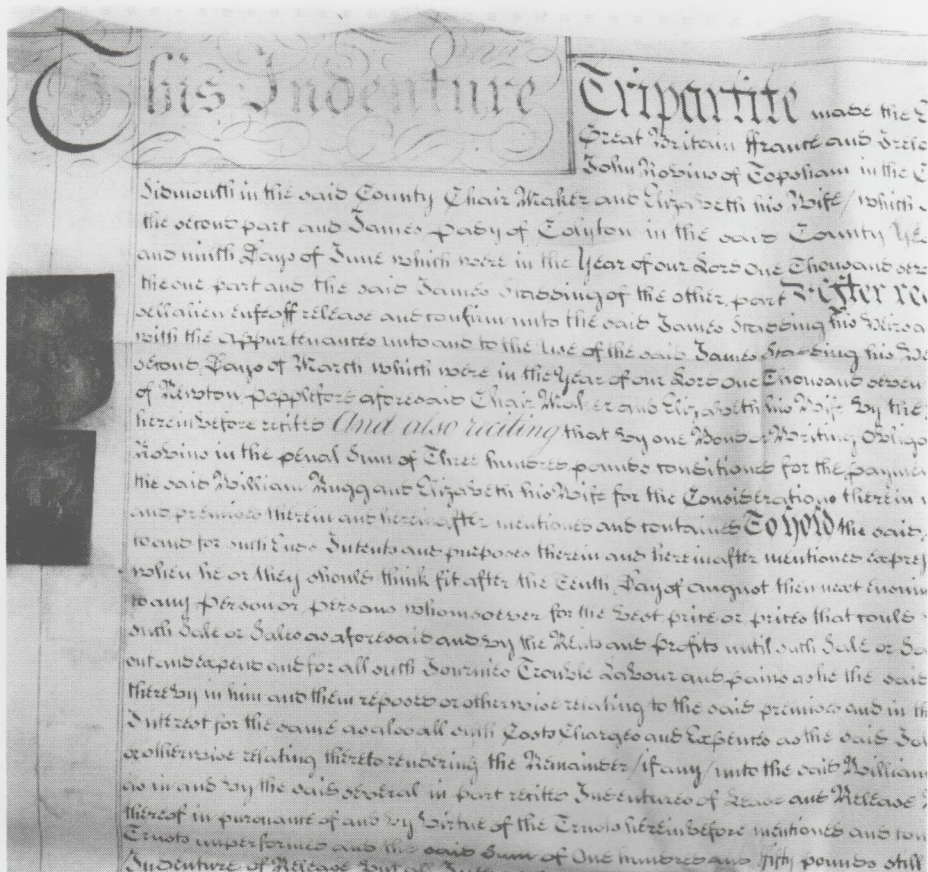 This Indenture Tripartite made the
Great Britain ffrance and
John Robins of Topsham in the
Sidmouth in the said County Chair Maker and Elizabeth his Wife / which
the second part and James Pady of Colyton in the said County
and ninth Days of June which were in the Year of our Lord One Thousand
the one part and the said James Stabbing of the other part After
sell alien enfeoff release and confirm unto the said James Stabbing his
with the appurtenances unto and to the Use of the said James Stabbing his
second Days of March which were in the Year of our Lord One Thousand seven
of Newton Poppleford aforesaid Chair Maker and Elizabeth his Wife by the
hereinbefore recited And also reciting that by one Bond or Writing
Robins in the penal Sum of Three hundred pounds conditioned for the
the said William Bugg and Elizabeth his Wife for the Considerations therein
and premises therein and hereinafter mentioned and contained To hold the said
to and for such Ends Intents and purposes therein and hereinafter mentioned
when he or they should think fit after the Tenth Day of august then next
to any person or persons whomsoever for the best price or prices that could
such Sale or Sales as aforesaid and by the Rents and profits until such Sale or
out and expend and for all such Journies Trouble Labour and pains as he the said
thereby in him and them reposed or otherwise relating to the said premises and in
Interest for the same as also all such Costs Charges and Expences as the said
or otherwise relating thereto rendering the Remainder / if any / unto the said William
as in and by the said several in part recited Indentures of Lease and Release
thereof in pursuance of and by Virtue of the Trusts hereinbefore mentioned and
Trusts unperformed and the said Sum of One hundred and fifty pounds still
Indenture of Release